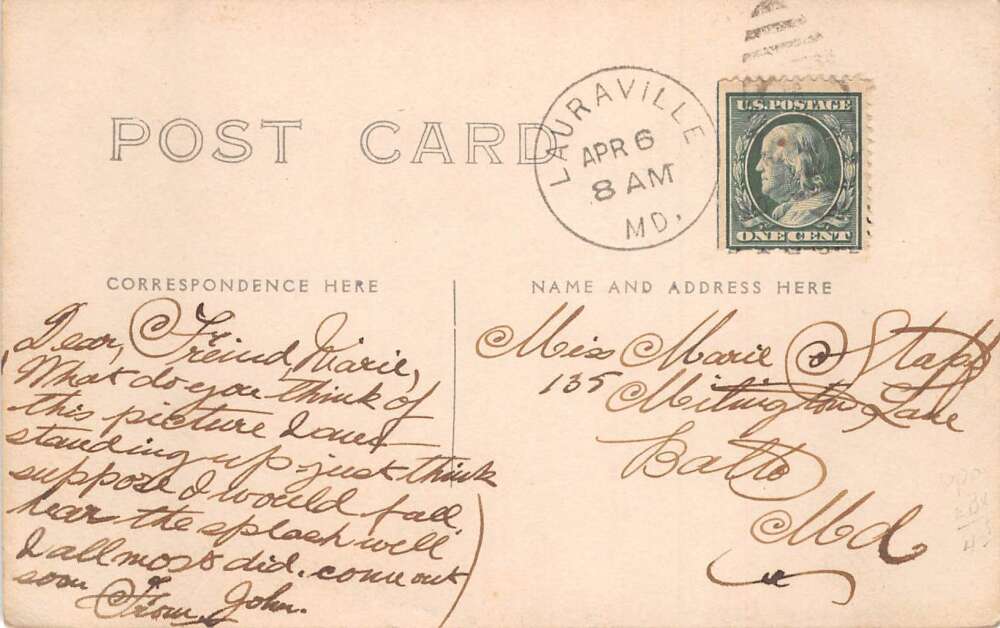 POST CARD
LAURAVILLE
APR 6
8 AM
MD.
U.S. POSTAGE
ONE CENT
CORRESPONDENCE HERE
NAME AND ADDRESS HERE
Dear, Freind, Marie,
What do you think of
this picture I am
standing up just think
suppose I would fall,
hear the splash well
I allmost did. come out
soon
From, John.
Miss Marie Stapf
135 Milington Lane
Balto
Md